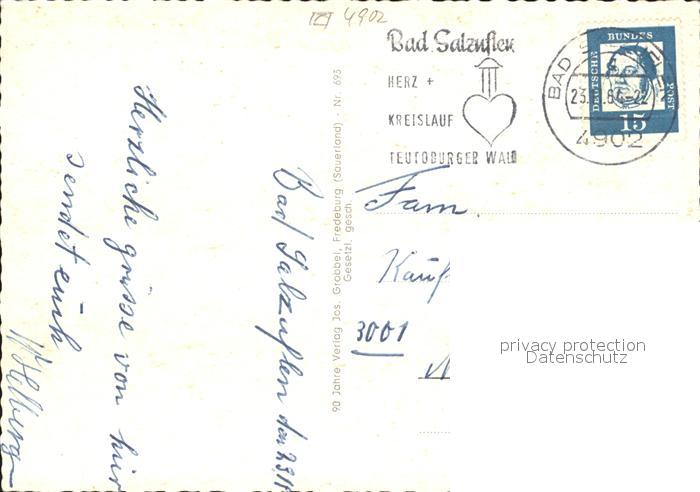 4902
Bad Salzuflen
HERZ +
KREISLAUF
TEUTOBURGER WALD
BAD
4902
DEUTSCHE
BUNDES
POST
15
Bad Salzuflen den 23.
Herzliche grüsse von hier
sendet euch
90 Jahre Verlag Jos. Grobbel, Fredeburg (Sauerland) - Nr. 695
Gesetzl. gesch.
Fam.
Kauf
3001
privacy protection
Datenschutz